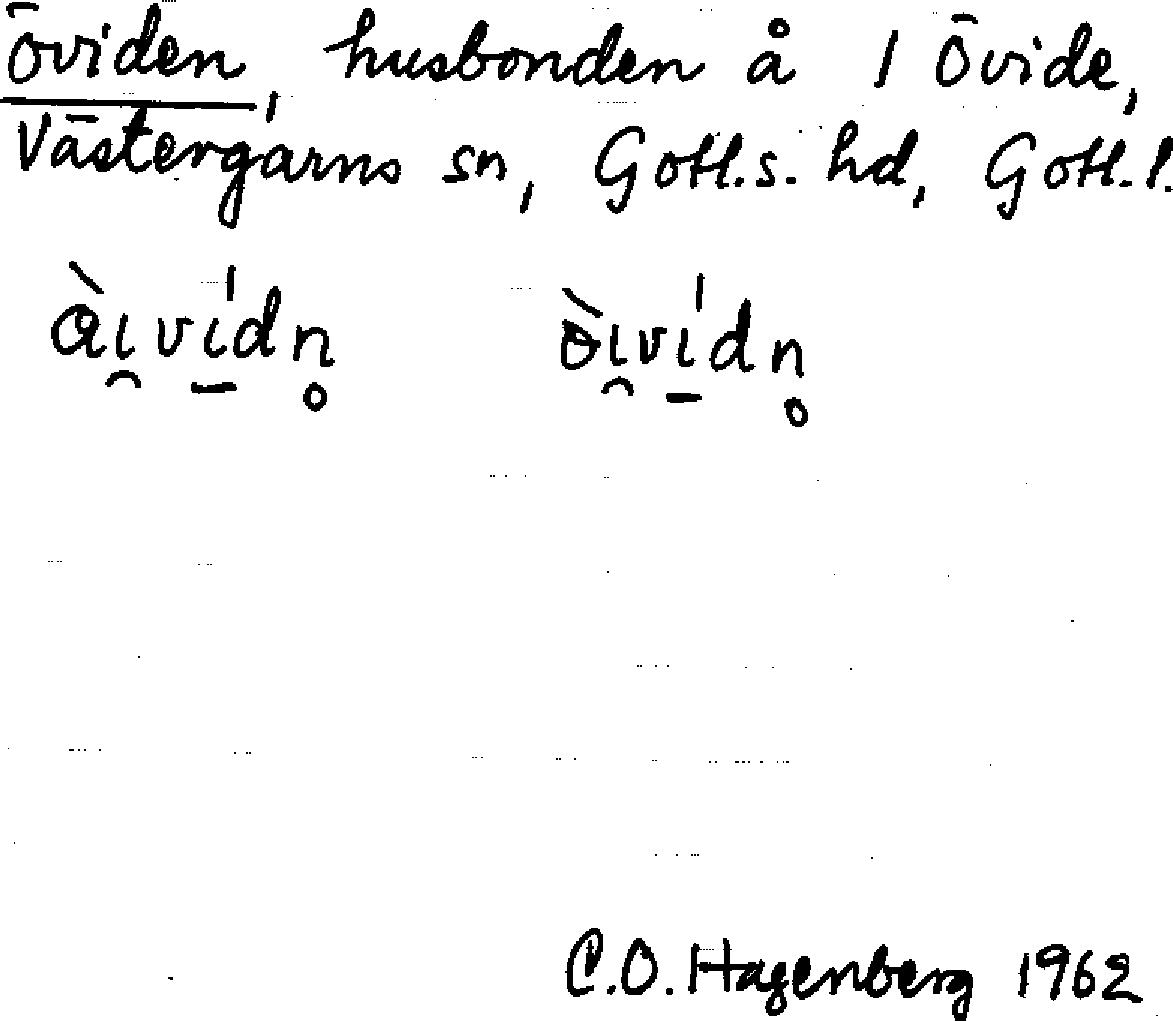 öviden, husbonden å 1 Övide,
Västergarns sn, Gotl.s. hd, Gotl.l.
C.O. Hagenberg 1962